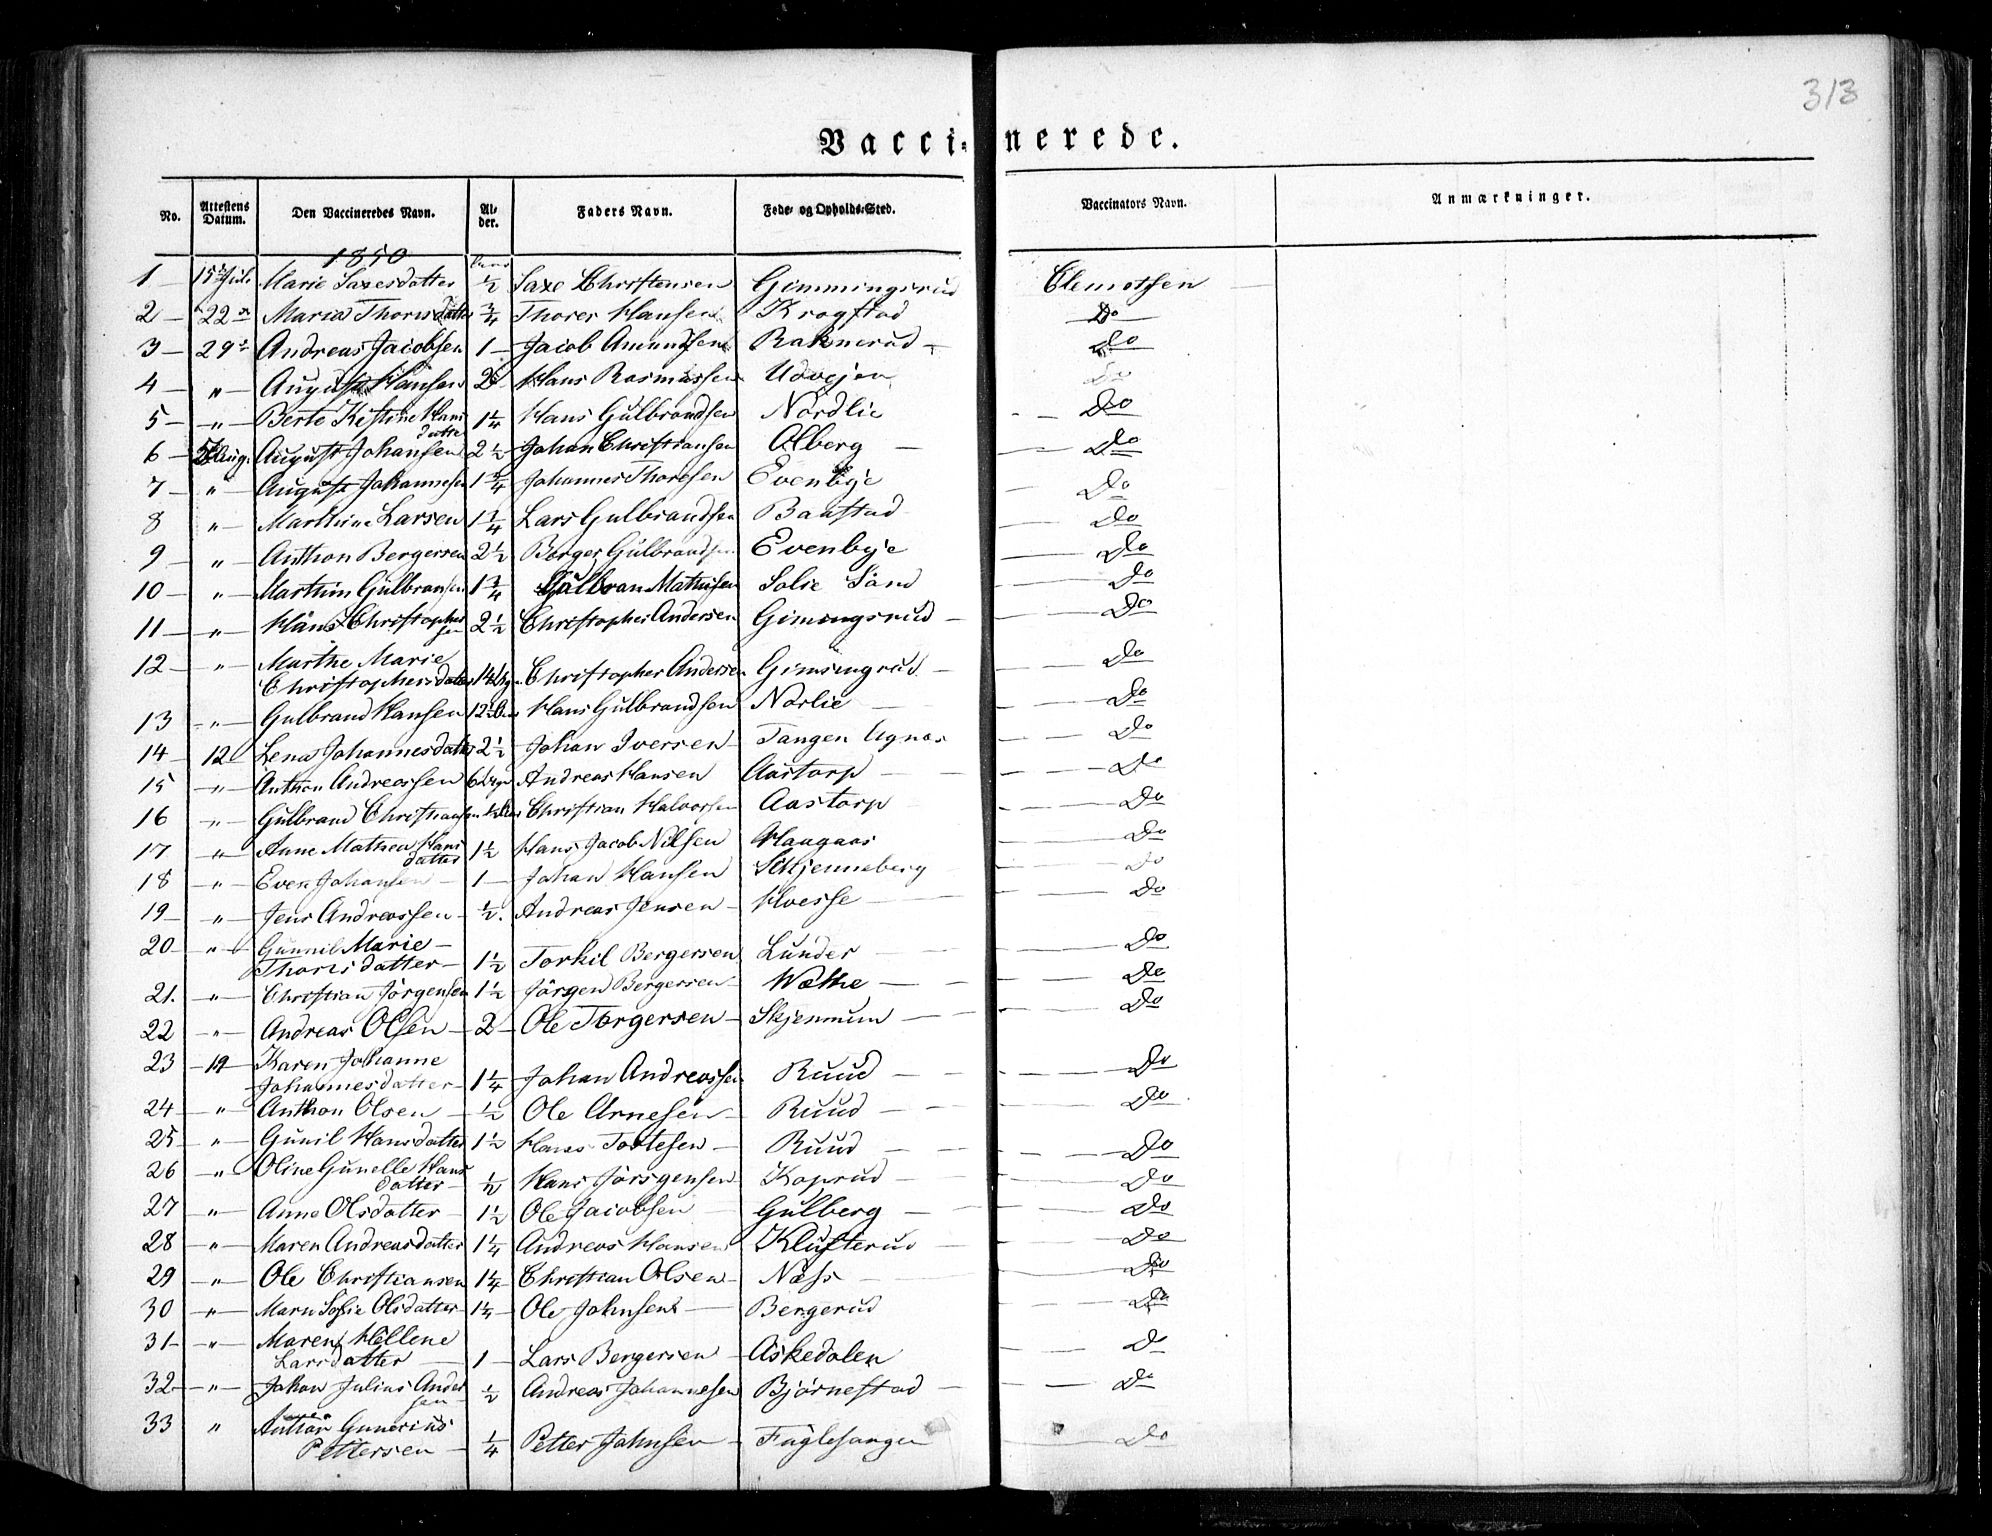 313
Vacci- nerede.
No. Attestens Datum. Den Vaccineredes Navn. Al- der. Faders Navn. Føde- og Opholds-Sted. Vaccinators Navn. Anmærkninger.
1850
1 15 Juli Marie Saxesdatter ½ Saxe Christensen Gimmingsrud Clemetsen
2 22 Maria Thorisdatter ¾ Thorer Hansen Krogstad Do
3 29 Andreas Jacobsen 1 Jacob Amundsen Raknerud Do
4 " August Hansen Hans Rasmussen Udvejen Do
5 " Berte Kistine Hans
datter 1¼ Hans Gulbrandsen Nordlie Do
6 Aug. August Johansen 2½ Johan Christiansen Olberg Do
7 " August Johannesen 1¾ Johannes Thoresen Evenbye Do
8 " Marthine Larsen 1¾ Lars Gulbrandsen Baastad Do
9 " Anthon Bergersen 2½ Berger Gulbrandsen Evenbye Do
10 " Marthin Gulbransen 1¾ Gulbran Mathisen Solie Do
11 " Hans Christopher
sen 2½ Christopher Andersen Gimingsrud Do
12 " Marthe Marie
Christophersdatter Christopher Andersen Gimingrud Do
13 " Gulbrand Hansen Hans Gulbrandsen Norlie Do
14 12 Lena Johannesdatter 2½ Johan Iversen Tangen Ugnas Do
15 " Anthon Andreassen Andreas Hansen Aastorp Do
16 " Gulbrand Christiansen Christian Halvorsen Aastorp Do
17 " Anne Mathea Hans
datter 1½ Hans Jacob Nilsen Haugaas Do
18 " Even Johansen 1 Johan Hansen Schjenneberg Do
19 " Jens Andreassen ½ Andreas Jensen Hvesse Do
20 " Gunnil Marie
Thorisdatter 1½ Torkil Bergersen Lunder Do
21. " Christian Jørgensen 1½ Jörgen Bergersen Wæthe Do
22 " Andreas Olsen 2 Ole Torgersen Skjennum Do
23 19 Karen Johanne
Johannesdatter 1¼ Johan Andreassen Ruud Do
24 " Anthon Olsen ½ Ole Arnesen Ruud Do
25 " Gunil Hansdatter 1½ Hans Tostesen Ruud Do
26 " Oline Gunelle Hans
datter ½ Hans Jörgensen Koprud Do
27 " Anne Olsdatter 1½ Ole Jacobsen Gulberg Do
28 " Maren Andreasdatter 1¼ Andreas Hansen Klufterud Do
29 " Ole Christiansen 1¼ Christian Olsen Næss Do
30 " Maren Sofie Olsdatter 1¼ Ole Johnsen Bergerud Do
31 " Maren Hellene
Larsdatter 1 Lars Bergersen Askedalen Do
32 " Johan Julius Ander
sen ½ Andreas Johannesen Bjørnestad Do
33 " Gunerius
Pettersen ¼ Petter Johnsen Fuglesangen Do